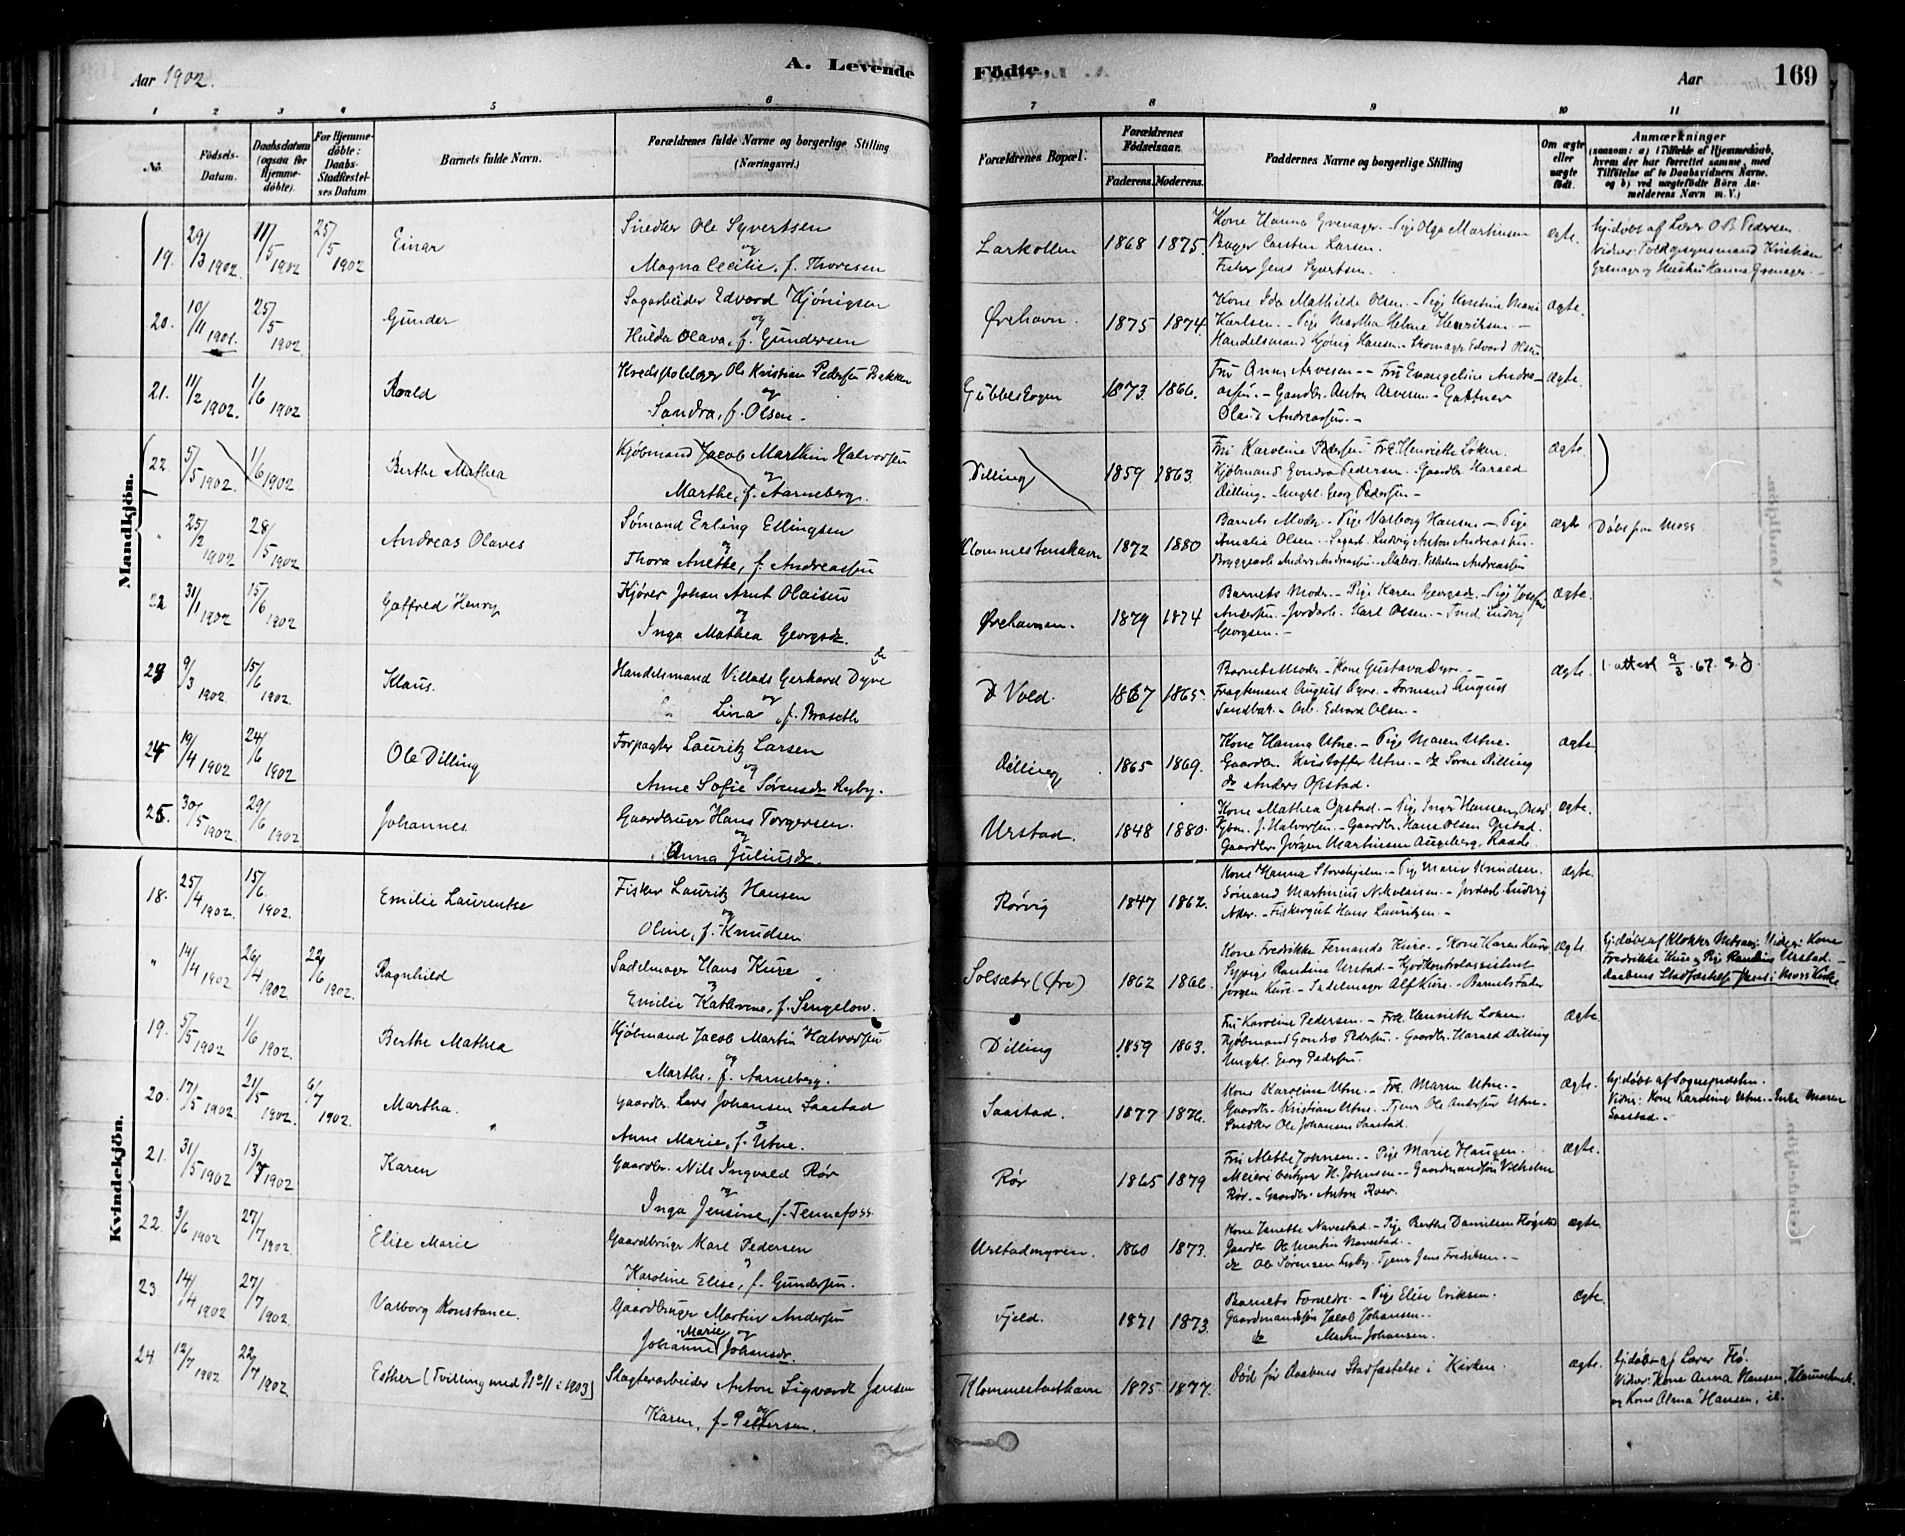 Aar 1902.
A. Levende
Födte,
Aar
169
1 2 3 4 5 6 7 8 9 10 11
No.
Födsels-Datum.
Daabsdatum (ogsaa for Hjemme-döbte).
For Hjemme-döbte: Daabs-Stadfæstel-ses Datum.
Barnets fulde Navn.
Forældrenes fulde Navne og borgerlige Stilling (Næringsvei.)
Forældrenes Bopæl.
Forældrenes Födselsaar.
Faderens. Moderens.
Faddernes Navne og borgerlige Stilling
Om ægte eller uægte födt.
Anmærkninger
(saasom: a) i Tilfælde af Hjemmedaab, hvem der har forrettet samme, med Tilföielse af to Daabsvidners Navne. og b) ved uægtefödte Börn An-melderens Navn m. V.)
Mandkjön.
19. 29/3 1902 11/5 1902 25/5 1902 Einar
Snedker Ole Syvertsen
og
Magna Cecilie, f. Thoresen
Larkollen 1868 1875.
Kone Hanna Grenager. Pige Olga Martinsen
Bager Carsten Larsen.
Fisker Jens Syvertsen.
ægte.
hj.døbt af Lærer O B Pedersen
Vidner: Toldopsynsmand Kristian
Grenager og Hustru Hanna Grenager.
20. 10/11 1901. 25/5 1902 Gunder
Sagarbeider Edvard Kjönigsen
og
Hulda Olava, f. Gundersen
Ørehavn. 1875 1874.
Kone Ida Mathilde Olsen. - Pige Kristine Marie
Karlsen. - Pige Martha Helene Henriksen -
Handelsmand Kjönig Hansen. - Skomager Edvard Olsen
ægte.
21. 11/2 1902. 1/6 1902 Roald
Kredspoldlæger Ole Kristian Pedersen Bakken
og
Sandra, f. Olsen.
Gubbeskogen 1873. 1866.
Fru Anna Arvesen. - Fru Evangeline Andre-
assen. - Gaardbr. Anton Arvesen - Gartner
Olaus Andreassen. -
ægte.
22. 5/5 1902. 1/6 1902 Berthe Mathea
Kjøbmand Jacob Marthin Halvorsen
og
Marthe, f. Aarneberg.
Dilling 1859 1863.
Fru Karoline Pedersen - Frk. Henriette Løken.
Kjøbmand Gundro Pedersen. - Gaardbr Harald
Dilling. - Ungkl. Georg Pedersen -
ægte.
" 25/2 1902 28/5 1902 Andreas Olaves
Sømand Erling Ellingsen
og
Thora Anette, f. Andreassen
Klommestenshavn 1872 1880
Barnets Moder. - Pige Valborg Hansen - Pige
Amalie Olsen. - Sagarb. Ludvig Anton Andreassen.
Bryggearb Anders Andreassen. - Malers. Vilhelm Andreassen
ægte Døbt paa Moss
22 31/1 1902 15/6 1902 Gotfred Henry
Kjører Johan Arnt Olaisen
og
Inga Mathea Georgsdr.
Ørehavnen. 1879 1874
Barnets Moder. - Pige Karen Georgsdr. - Pige Josefine
Andersen. - Jordarb. Karl Olsen. - Smed Ludvig
Georgsen. -
ægte.
23 9/3 1902 15/6 1902 Klaus.
Handelsmand Villads Gerhard Dyre
og
Lina, f. Braseth
D Vold. 1867 1865.
Barnets Moder - Kone Gustava Dyre. -
Fragtemand August Dyre. - Formand August
Sandbak. - Arb. Edvard Olsen. -
ægte. 1. attest 9/3. 67.
24 19/4 1902 24/6 1902 Ole Dilling
Forpagter Lauritz Larsen
og
Anne Sofie Sørensdr Ryby.
Dilling 1865 1869.
Kone Hanna Utne. - Pige Maren Utne.
Gaardbr. Kristoffer Utne. - do Sørene Dilling
do Anders Opstad.
ægte
25. 30/5 1902. 29/6 1902 Johannes.
Gaardbruger Hans Torgersen.
og
Anna Juliusdr.
Urstad. 1848 1880.
Kone Mathea Opstad. - Pige Inger Hansen,
Kjbm. J. Halvorsen. - Gaardbr. Hans Olsen Opstad.
Gaardbr. Jørgen Martinsen Augeberg, Raade
ægte.
Kvindekjön.
18. 25/4 1902. 15/6 1902. Emilie Laurentse
Fisker Lauritz Hansen
og
Oline, f. Knudsen
Rørvig 1847 1862.
Kone Hanna Storehjelm - Pige Marie Knudsen.
Sømand Martinius Nikolaisen. - Jordarb. Ludvig
- Fiskergut Hans Lauritzen. -
ægte.
" 14/4 1902 26/4 1902. 22/6 1902. Ragnhild
Sadelmager Hans Kure
og
Emilie Kathrine, f. Sengelow.
Solsæter (Øre) 1862 1866.
Kone Fredrikke Fernanda Kure. - Kone Karen Kure
Sypige Randine Urstad - Kjødkontrolassistent
Jørgen Kure. - Sadelmager Alf Kure. - Barnets Fader
ægte.
hj.døbt af Klokker Vidner: Kone
Fredrikke Kure og Pige Randine Urstad. -
Daabens Stadfæstelse i Moss Kirke
19. 5/5 1902 1/6 1902. Berthe Mathea
Kjøbmand Jacob Martin Halvorsen
og
Marthe, f. Aarneberg.
Dilling 1859 1863.
Fru Karoline Pedersen. - Frk. Henriette Løken
Kjøbmand Gundro Pedersen - Gaardbr. Harald Dilling
Ungkl. Georg Pedersen.
ægte.
20. 17/5 1902. 21/5 1902. 6/7 1902. Martha.
Gaardbr. Lars Johansen Saastad
og
Anne Marie, f. Utne.
Saastad. 1877 1876.
Kone Karoline Utne - Frk. Maren Utne. -
Gaardbr. Kristian Utne. - Tjener Ole Andersen Utne.
Snedker Ole Johansen Saastad.
ægte.
hj.døbt af Sognepræsten.
Vidner: Kone Karoline Utne. - Enke Maren
Saastad. -
21. 31/5 1902 13/7 1902 Karen
Gaardbr. Nils Ingvald Rør
og
Inga Jensine, f. Tennefoss.
Rør 1865 1879
Fru Methe Johnsen. - Pige Marie Haugen.
Meieribestyrer H. Johnsen - Gaardmandssøn Vilhelm
Rør. - Gaardbr. Anton Roer.
ægte.
22. 3/6 1902 27/7 1902. Elise Marie
Gaardbruger Karl Pedersen
og
Karoline Elise, f. Gundersen.
Urstadmyren. 1860 1873.
Kone Janette Navestad - Pige Berthe Danielsen
Gaardbr Ole Martin Navestad.
do Ole Sørensen Ryby. Tjener Jens Fredriksen. -
ægte.
23. 14/4 1902 27/7 1902. Valborg Konstance
Gaardbruger Martin Andersen
og
Johanne Marie Johansdr.
Fjeld. 1871 1873.
Barnets Forældre. - Pige Elise Eriksen.
Gaardmandssøn Jacob Johansen.
do Martin Johansen.
ægte.
24. 12/7 1902 22/7 1902. Esther [Tvilling med No 11 i 1903]
Slagterarbeider Anton Sigvardt Jensen
og
Karen, f. Pettersen.
Klommestenhavn 1875 1877.
Død før Daabens Stadfæstelse i Kirken.
ægte.
hj.døbt af Lærer Flø.
Vidner: Kone Anna Hansen,
og Kone Alma Hansen, ib.